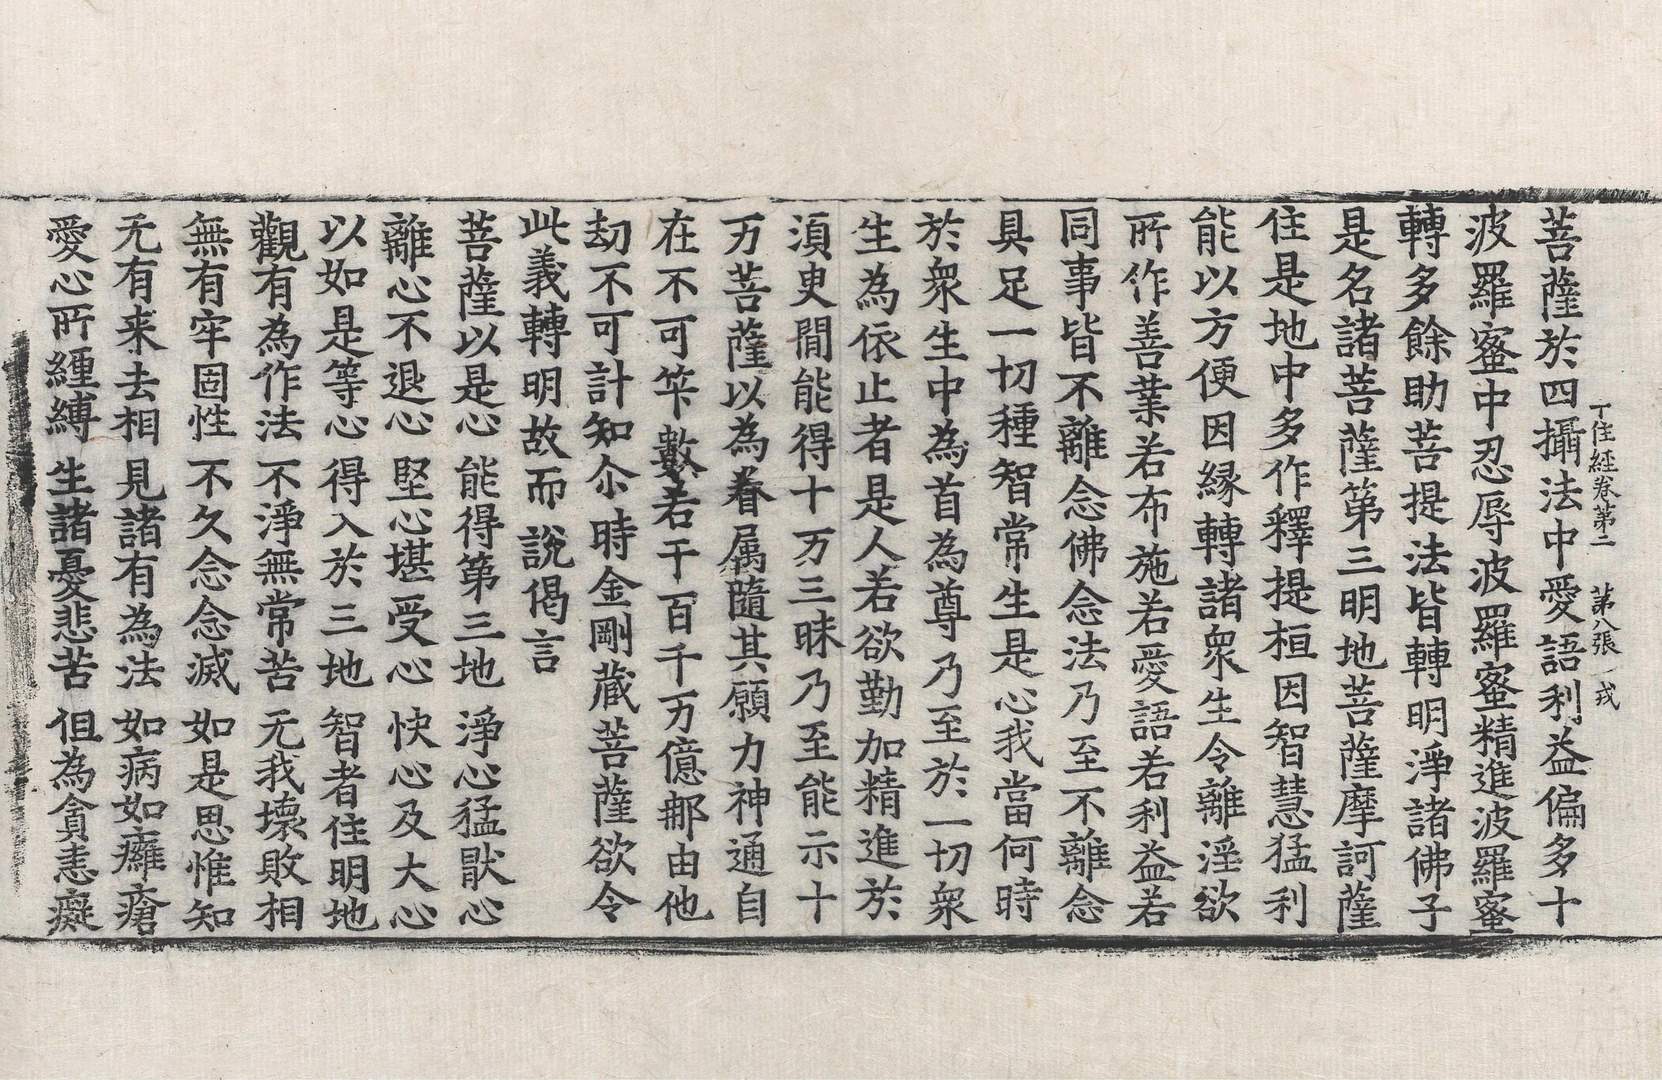 菩薩於四攝法中愛語利益偏多十
丁住經卷第二 第八張 戎
波羅蜜中忍辱波羅蜜精進波羅蜜
轉多餘助菩提法皆轉明淨諸佛子
是名諸菩薩第三明地菩薩摩訶薩
住是地中多作釋提桓因智慧猛利
能以方便因緣轉諸衆生令離淫欲
所作善業若布施若愛語若利益若
同事皆不離念佛念法乃至不離念
具足一切種智常生是心我當何時
於衆生中為首為尊乃至於一切衆
生為依止者是人若欲勤加精進於
湏臾閒能得十万三昧乃至能示十
万菩薩以為眷属隨其願力神通自
在不可筭數若干百千万億那由他
劫不可計知尒時金剛藏菩薩欲令
此義轉明故而說偈言
菩薩以是心 能得第三地 淨心猛猒心
離心不退心 堅心堪受心 快心及大心
以如是等心 得入於三地 智者住明地
觀有為作法 不淨無常苦 无我壊敗相
無有牢固性 不久念念滅 如是思惟知
无有来去相 見諸有為法 如病如癰瘡
愛心所纏縛 生諸憂悲苦 但為貪恚癡